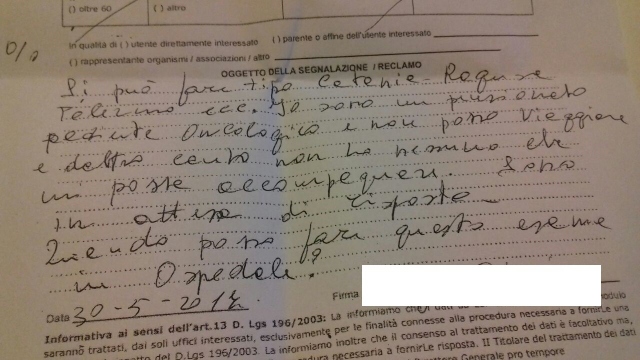 ( ) oltre 60
( ) altro
0/0
In qualità di ( ) utente direttamente interessato ( ) parente o affine dell'utente interessato
( ) rappresentante organismi / associazioni / altro
OGGETTO DELLA SEGNALAZIONE / RECLAMO
Si può fare tipo Catania - Ragusa
Palermo ecc. Io sono un
paziente Oncologico e non posso viaggiare
e dell'altro canto non ho nessuno che
mi possa accompagnare. Sono
in attesa di risposta
Quando posso fare questo esame
in Ospedale?
Data 30-5-201
Firma
Informativa ai sensi dell'art.13 D. Lgs 196/2003: La informiamo che i dati
saranno trattati, dai soli uffici interessati, esclusivamente per le finalità connesse alla procedura necessaria a fornirLe una
La informiamo inoltre che il consenso al trattamento dei dati è facoltativo ma,
necessaria a fornirLe risposta. Il Titolare del trattamento dei dati
Generale pro tempore